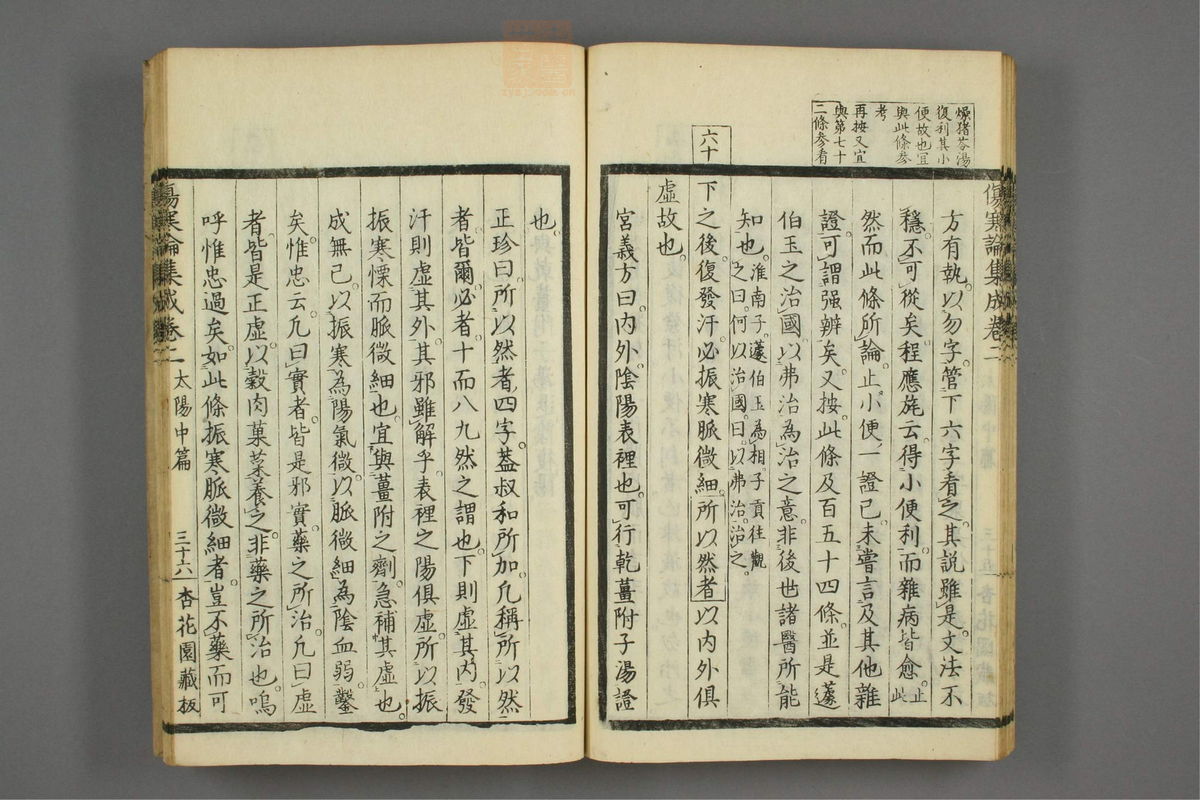 爍猪苓湯
復利其小
便故也宜
與此條參
考
再按又宜
與第七十
二條參看
傷寒論集成卷二
方有執以勿字管下六字者之其說雖是文法不
穩不可從矣程應旄云得小便利而雜病皆愈止此
然而此條所論止小便一證已未嘗言及其他雜
證可謂强辨矣又按此條及百五十四條並是蘧
伯玉之治國以弗治為治之意非後也諸醫所能
知也淮南子蘧伯玉為相子貢往觀之曰何以治國曰以弗治治之
六十
下之後復發汗必振寒脈微細所以然者以内外俱
虛故也
宮義方曰内外陰陽表裡也可行乾薑附子湯證
也
正珍曰所以然者四字蓋叔和所加凢稱所以然
者皆爾必者十而八九然之謂也下則虛其内發
汗則虛其外其邪雖解乎表裡之陽俱虛所以振
振寒慄而脈微細也宜與薑附之劑急補其虛也
成無已以振寒為陽氣微以脈微細為陰血弱鑿
矣惟忠云凢曰實者皆是邪實藥之所治凢曰虛
者皆是正虛以穀肉菓菜養之非藥之所治也嗚
呼惟忠過矣如此條振寒脈微細者豈不藥而可
傷寒論集成卷二
太陽中篇
三十六
杏花園藏板